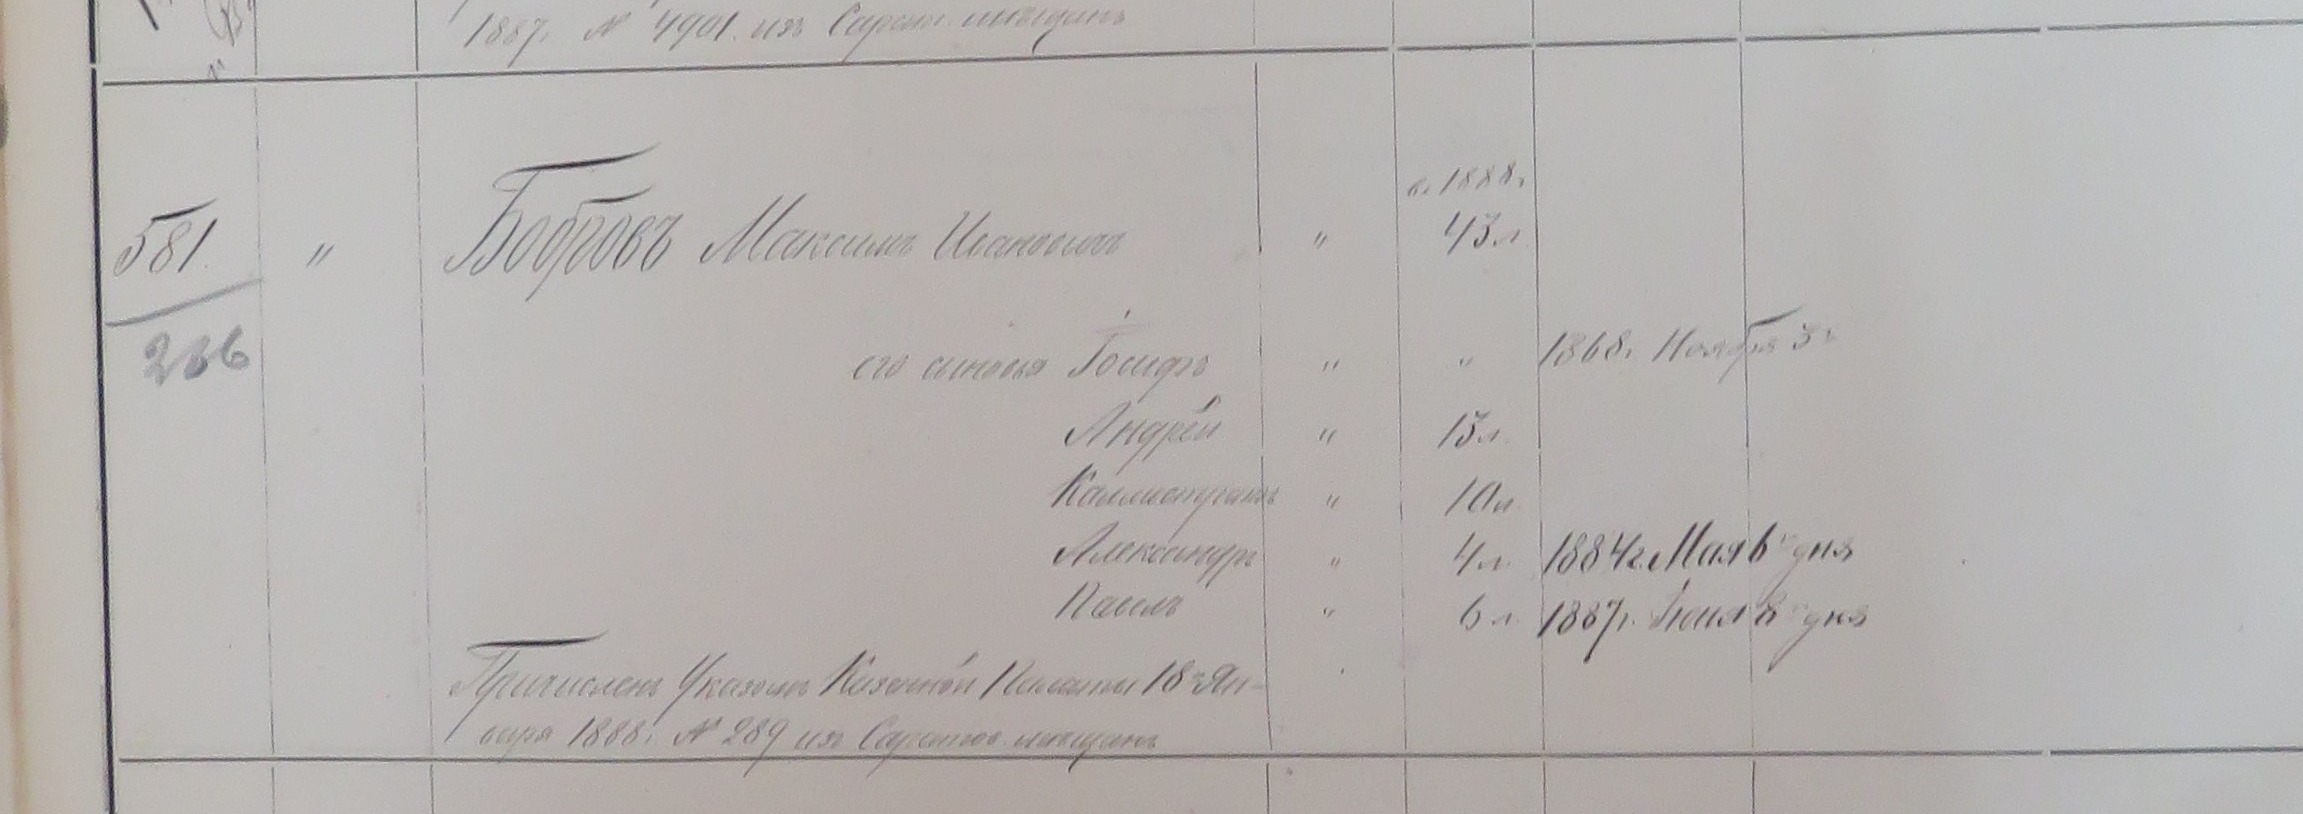 1887г. № 4901. изъ Сарат. мѣщанъ
въ 1888г.
581. " Бобровъ Максимъ Ивановичъ " 43л.
236
его сыновья Іосифъ " " 1868г. Ноября 3г
Андрей " 13л.
Каллистратъ " 10л.
Александръ " 4л. 1884г. Мая 6го дня
Павелъ " 6л. 1887г. Іюня 8го дня
Причисленъ Указомъ Казенной Палаты 18го Ян-
варя 1888г. № 289 изъ Саратов. мѣщанъ